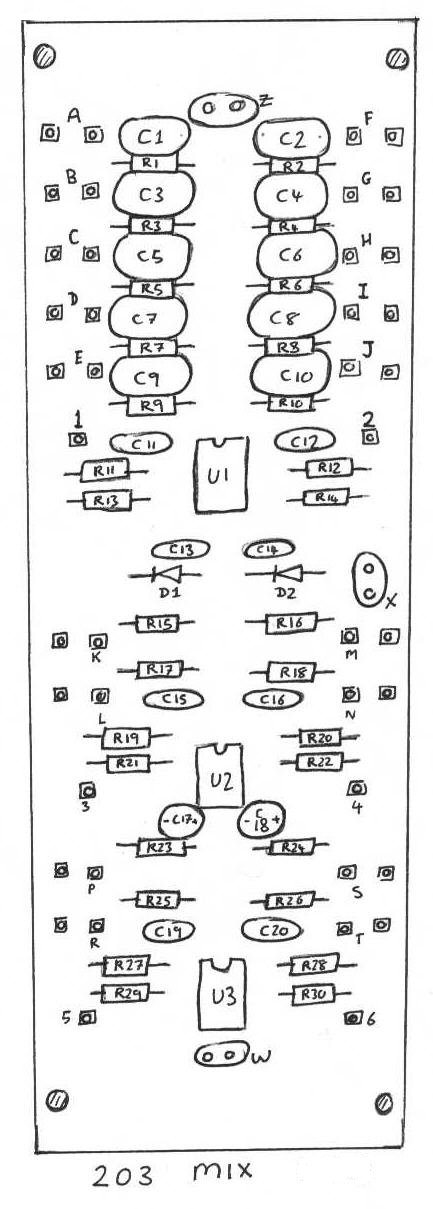 Z
A C1 C2 F
R1 R2
B C3 C4 G
R3 R4
C C5 C6 H
R5 R6
D C7 C8 I
R7 R8
E C9 C10 J
R9 R10
1 C11 C12 2
R11 U1 R12
R13 R14
C13 C14
D1 D2
X
R15 R16
K M
R17 R18
L C15 C16 N
R19 R20
R21 R22
U2
3 4
-C17+ -C18+
R23 R24
P S
R25 R26
R C19 C20 T
R27 R28
R29 U3 R30
5 6
W
203 MIX